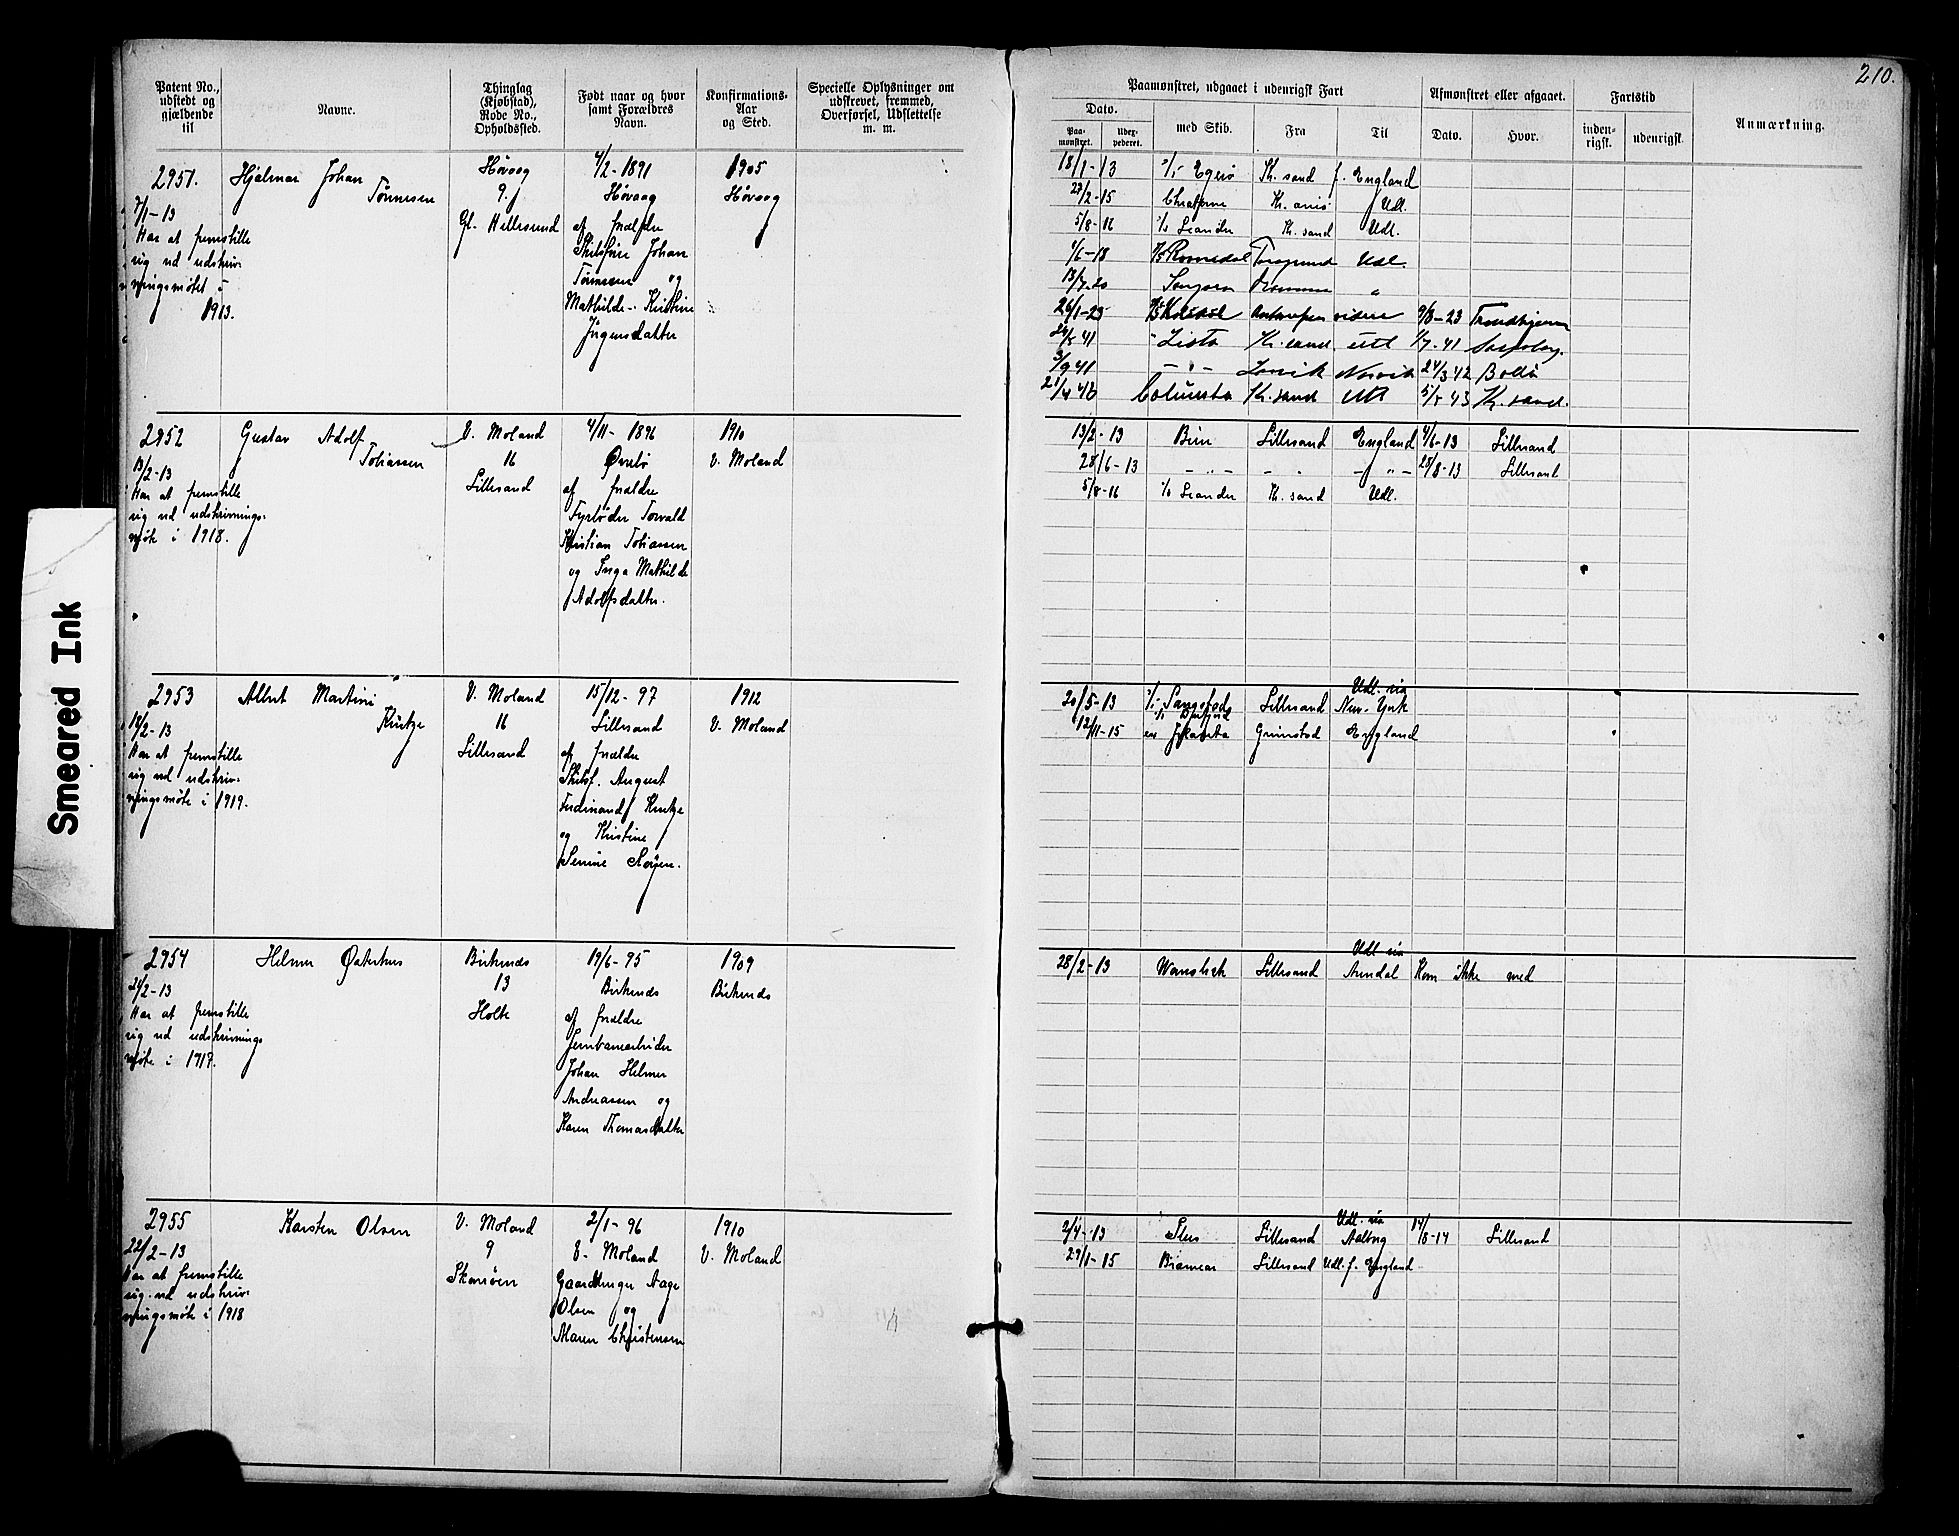 210.
Patent No., udstedt og gjældende til
Navne.
Thinglag (Kjøbstad), Rode No., Opholdssted.
Født naar og hvor samt Forældres Navn.
Konfirmations- Aar og Sted.
Specielle Oplysninger om udskrevet, fremmed, Overførsel, Udslettelse m. m.
Paamønstret, udgaaet i udenrigsk Fart
Afmønstret eller afgaaet.
Fartstid
Anmærkning.
Dato.
Paa- mønstret.
Udex- pederet.
med Skib.
Fra
Til
Dato.
Hvor.
inden- rigsk.
udenrigsk.
2951.
7/1-13
Har at fremstille
sig ved udskriv-
ningsmötet i
1913.
Hjalmar Johan
Tönnesen
Høvaag
9.
Gl. Hellesund
4/2-1891
Høvaag
af forældre
Skibsfører Johan
Tönnesen og
Mathilde Kristine
Jörgensdatter
1905
Høvaag
18/1-13 Egerö Kr. sand f. England
23/2-15 Kr. ania Udl.
5/8-16 Leander Kr. sand Udl.
4/6-18 Romsdal Udl.
13/7-20
26/1-23 Antwerpen videre 9/8-23 Trondhjem
41 Lista Kr. sand utl 1/7-41 Sarpsborg.
3/9 41 - " - Larvik Narvik 24/3 42 Bodö
21/4 42 Columba Kr. sand Utl 5/5 43 Kr. sand.
2952
13/2-13
Har at fremstille
sig ved udskrivnings-
möte i 1918.
Gustav Adolf
Tobiassen
V. Moland
16
Lillesand
4/11-1896
Øvrebö
af forældre
Fyrböder Torvald
Kristian Tobiassen
og Inga Mathilde
Adolfsdatter.
1910
V. Moland
13/2-13 Lillesand England 4/6-13 Lillesand
28/6-13 - " - - " - - " - 28/8-13 Lillesand
5/8-16 Leander Kr. sand Udl.
2953
19/2-13
Har at fremstille
sig ved udskriv-
ningsmöte i 1919.
Albert Martini
V. Moland
16
Lillesand
15/12-97
Lillesand
af forældre
Skibsf. August
Ferdinand
og Kristine
1912
V. Moland
20/5-13 Lillesand Udl. via New-York
12/11-15 Grimstad England
2954
21/2-13
Har at fremstille
sig ved udskrivnings
möte i 1917.
Helmer
Birkenes
13
Holte
19/6-95
Birkenes
af forældre
Jernbanearbeider
Johan Helmer
Andreassen og
Karen Thomasdatter
1909
Birkenes
28/2-13 Lillesand Udl. via Arendal Kom ikke med
2955
22/2-13
Har at fremstille
sig ved udskriv-
ningsmöte i 1918
Karsten Olsen
V. Moland
9
2/1-96
V. Moland
Gaardbruger Aage
Olsen og
Maren Christensen
1910
V. Moland
2/4-13 Lillesand Udl. via Aalborg 14/8-14 Lillesand
29/1-15 Lillesand Udl. f. England
Smeared Ink